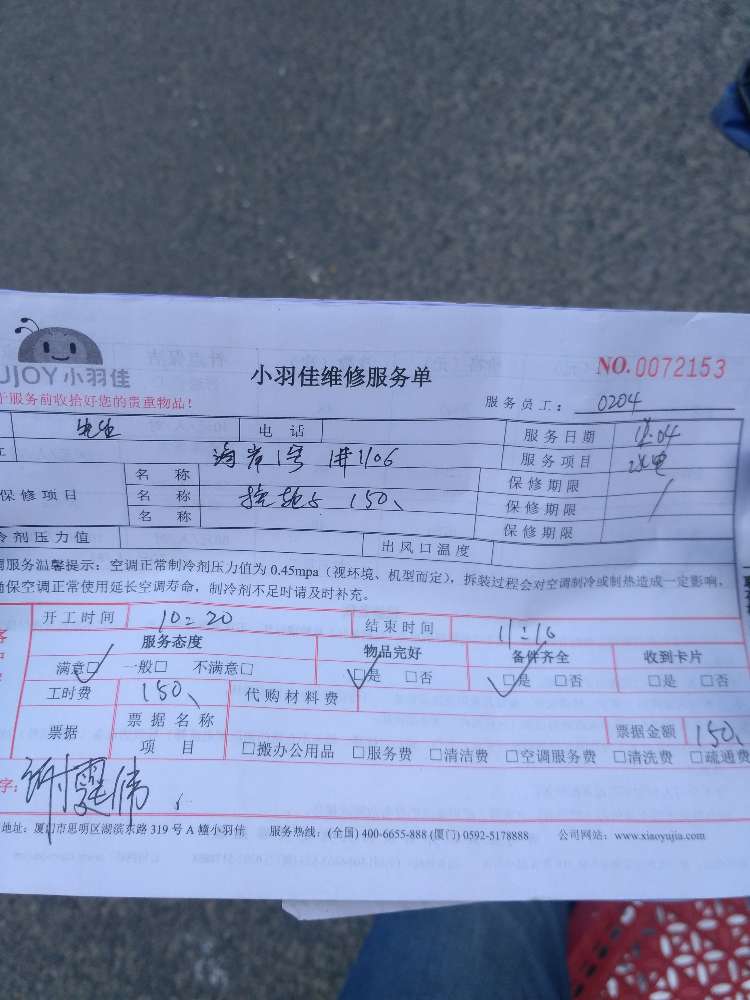 UJOY小羽佳
小羽佳维修服务单
NO.0072153
于服务前收拾好您的贵重物品！
服务员工： 0204
先生 电 话 服务日期 12.04
海岸1号 1106 服务项目 水电
保修项目 名 称 保修期限
名 称 150、 保修期限
名 称 保修期限
冷剂压力值 出风口温度
调服务温馨提示：空调正常制冷剂压力值为 0.45mpa（视环境、机型而定），拆装过程会对空调制冷或制热造成一定影响，
确保空调正常使用延长空调寿命，制冷剂不足时请及时补充。
开工时间 10:20 结束时间 11:16
服务态度 物品完好 备件齐全 收到卡片
满意□ 一般□ 不满意□ □是 □否 □是 □否 □是 □否
工时费 150、 代购材料费
票据 票据名称 票据金额 150、
项 目 □搬办公用品 □服务费 □清洁费 □空调服务费 □清洗费 □疏通费
字：
地址：厦门市思明区湖滨东路 319 号 A 幢小羽佳 服务热线：(全国) 400-6655-888 (厦门) 0592-5178888 公司网站：www.xiaoyujia.com